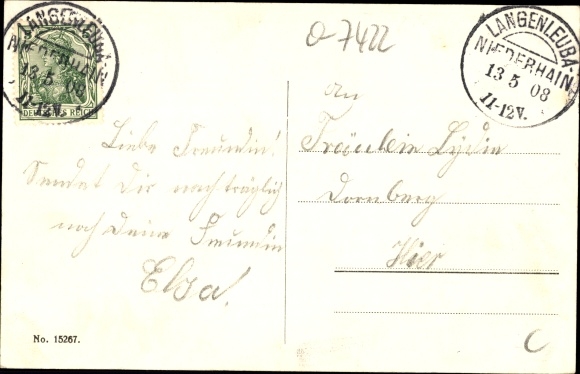 LANGENLEUBA-
NIEDERHAIN
13 5 08
11-12V.
DEUTSCHES REICH
O-7422
LANGENLEUBA-
NIEDERHAIN
13 5 08
11-12V.
An
Fräulein Lydia
Dornberg
Hier
Liebe Freundin!
Sendet Dir nachträglich
noch Deine Freundin
Elsa!
No. 15267.
C